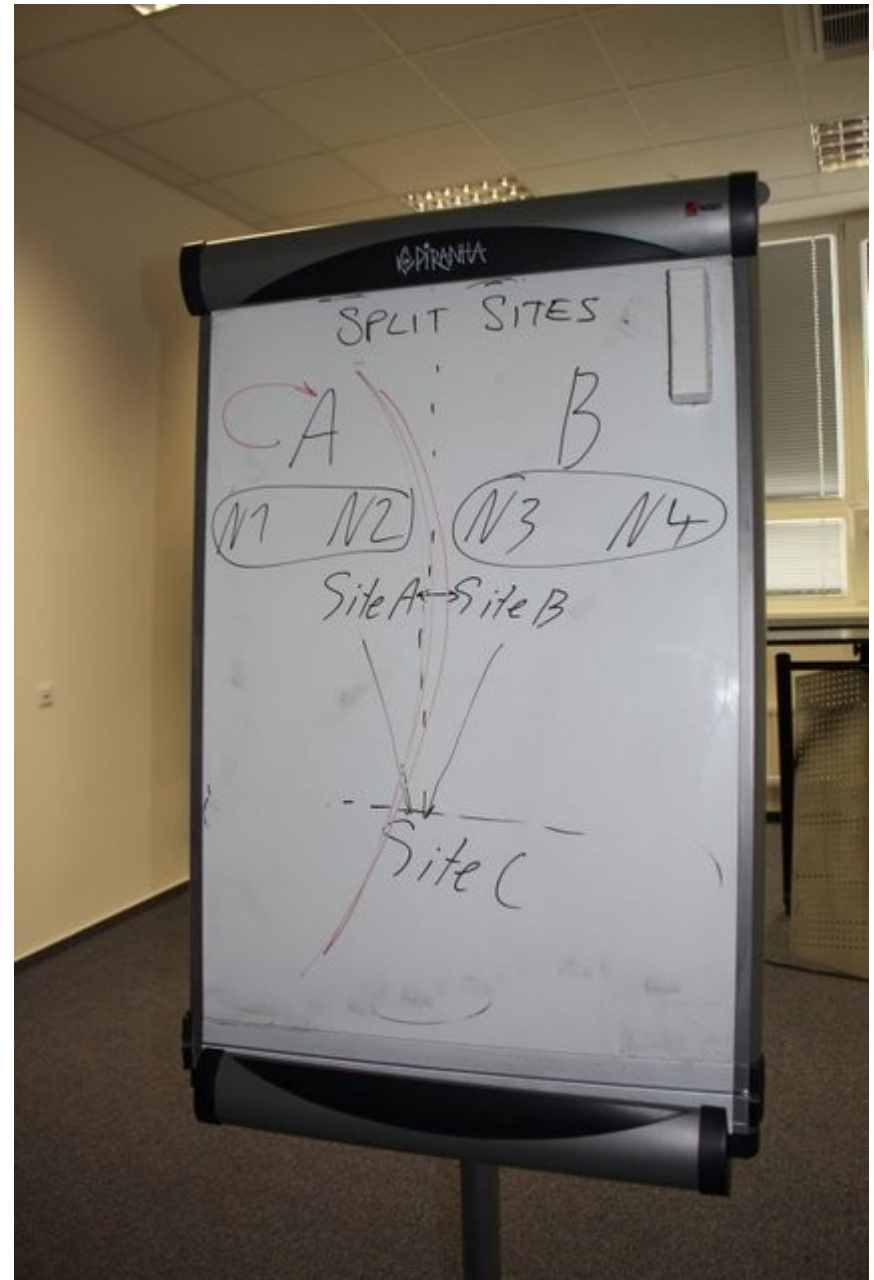 PIRANHA
SPLIT SITES
A B
N1 N2 N3 N4
Site A Site B
Site C